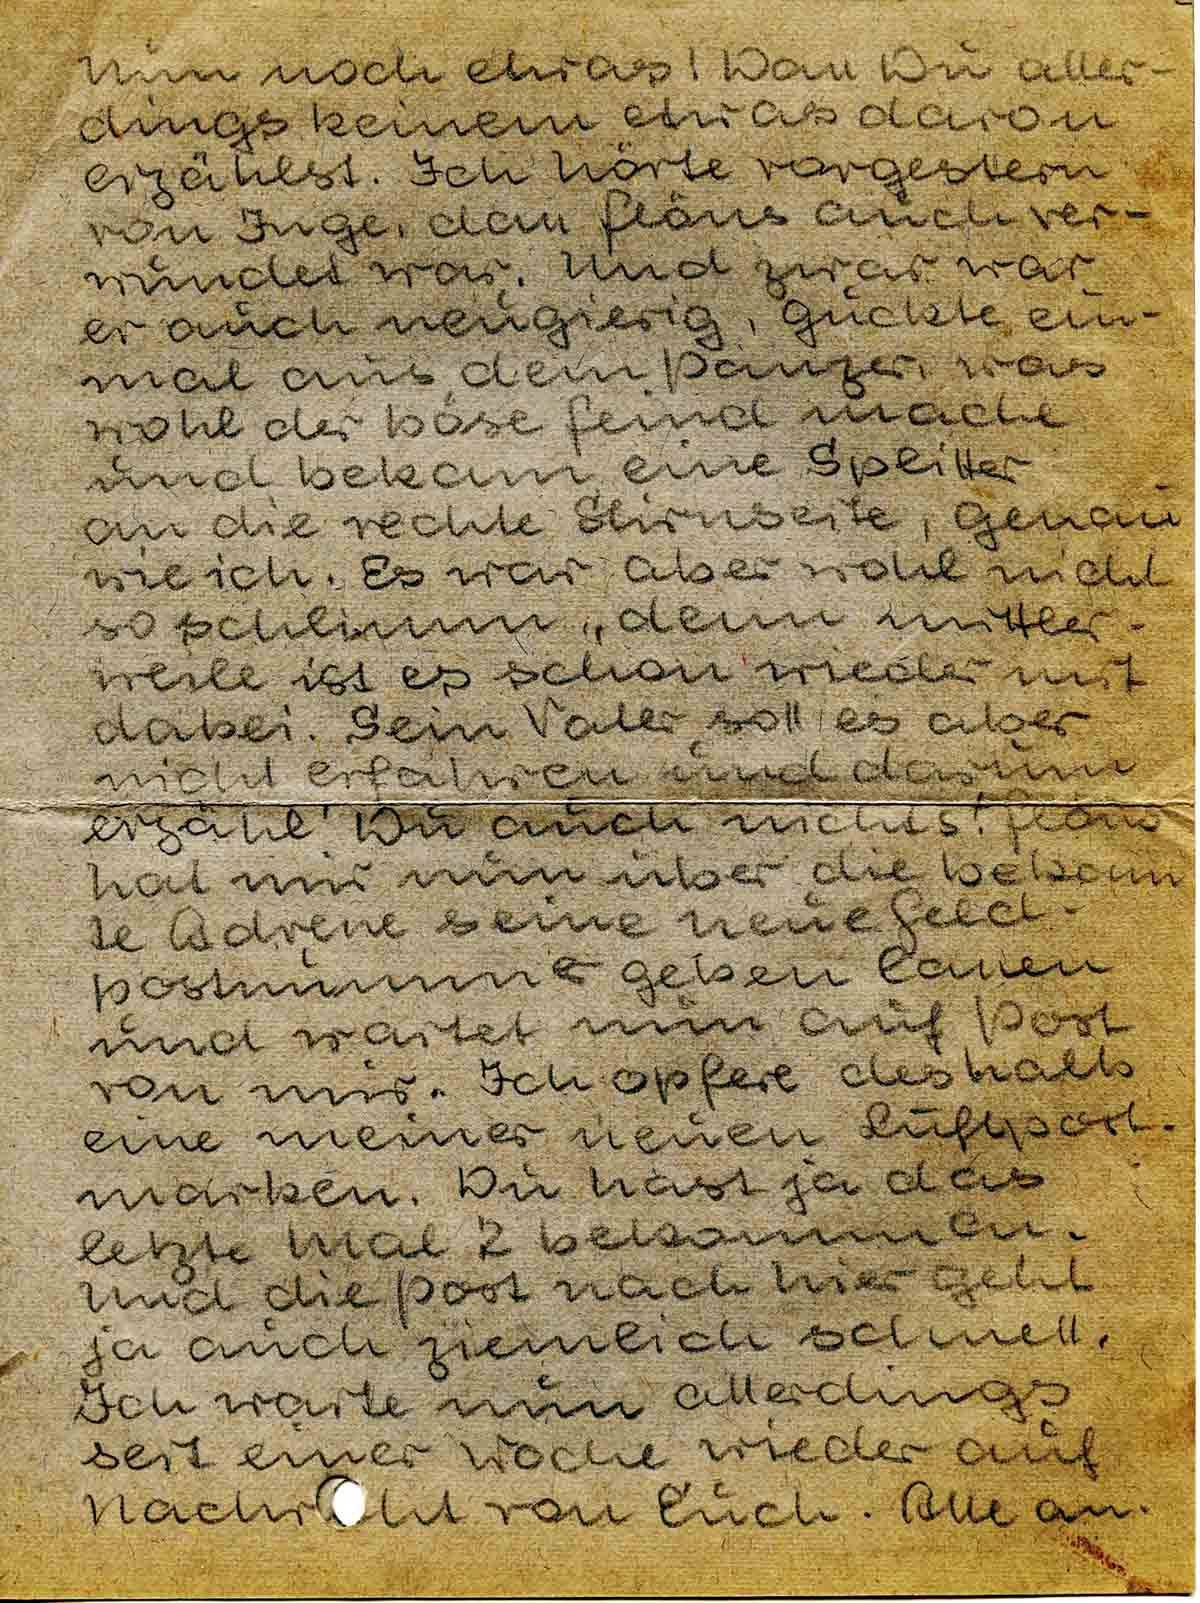 Nun noch etwas! Dass Du aller-
dings keinem etwas davon
erzählst. Ich hörte vorgestern
von Inge, dass Klöns auch ver-
wundet war. Und zwar war
er auch neugierig, guckte ein-
mal aus dem Panzer, was
wohl der böse Feind mache
und bekam eine Splitter
an die rechte Stirnseite, genau
wie ich. Es war aber wohl nicht
so schlimm, denn mittler-
weile ist es schon wieder mit
dabei. Sein Vater soll es aber
nicht erfahren und darum
erzähl' Du auch nichts! Klöns
hat mir nun über die bekann
te Adresse seine neue Feld-
postnummer geben lassen
und wartet nun auf Post
von mir. Ich opfere deshalb
eine meiner neuen Luftpost-
marken. Du hast ja das
letzte Mal 2 bekommen.
Und die Post nach hier geht
ja auch ziemlich schnell.
Ich warte nun allerdings
seit einer Woche wieder auf
Nachricht von Euch. Alle an-